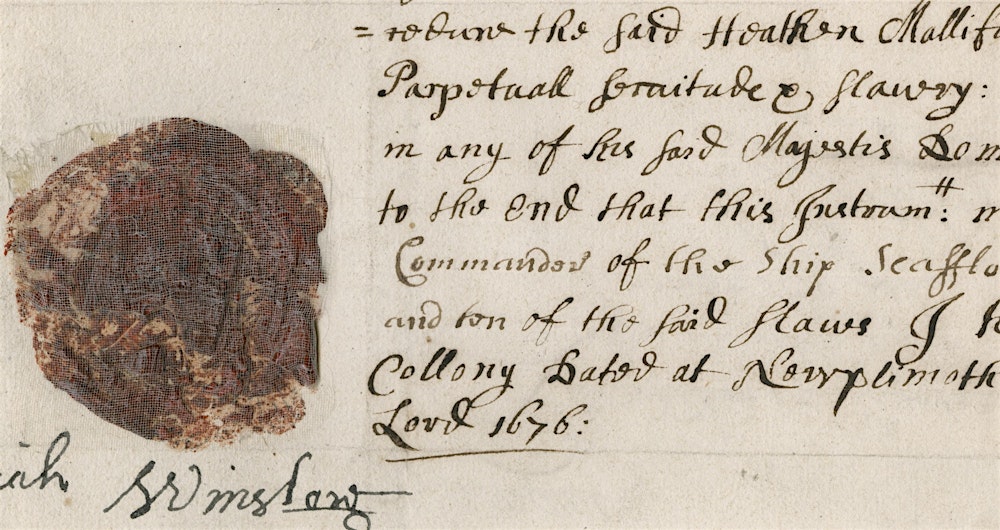 =reduce the said Heathen Mallifa
Parpetuall servitude & slavery:
in any of his said Majestis Dom
to the End that this Instrum:tt m
Commander of the Ship Seafflo
and ten of the said slaves I
Collony Dated at Newplimoth
Lord 1676:
iah Winslow